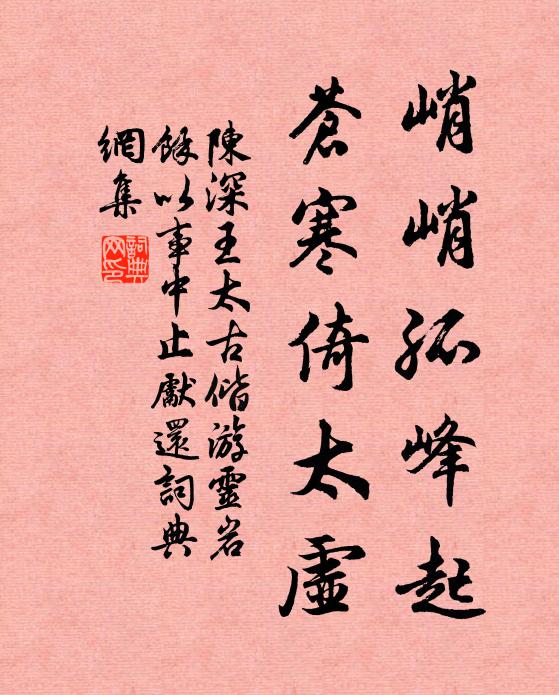 峭峭孤峰起
蒼寒倚太虛
陳深王太古偕游靈岩
餘以事中止獻還詞典
網集
詞典
网印